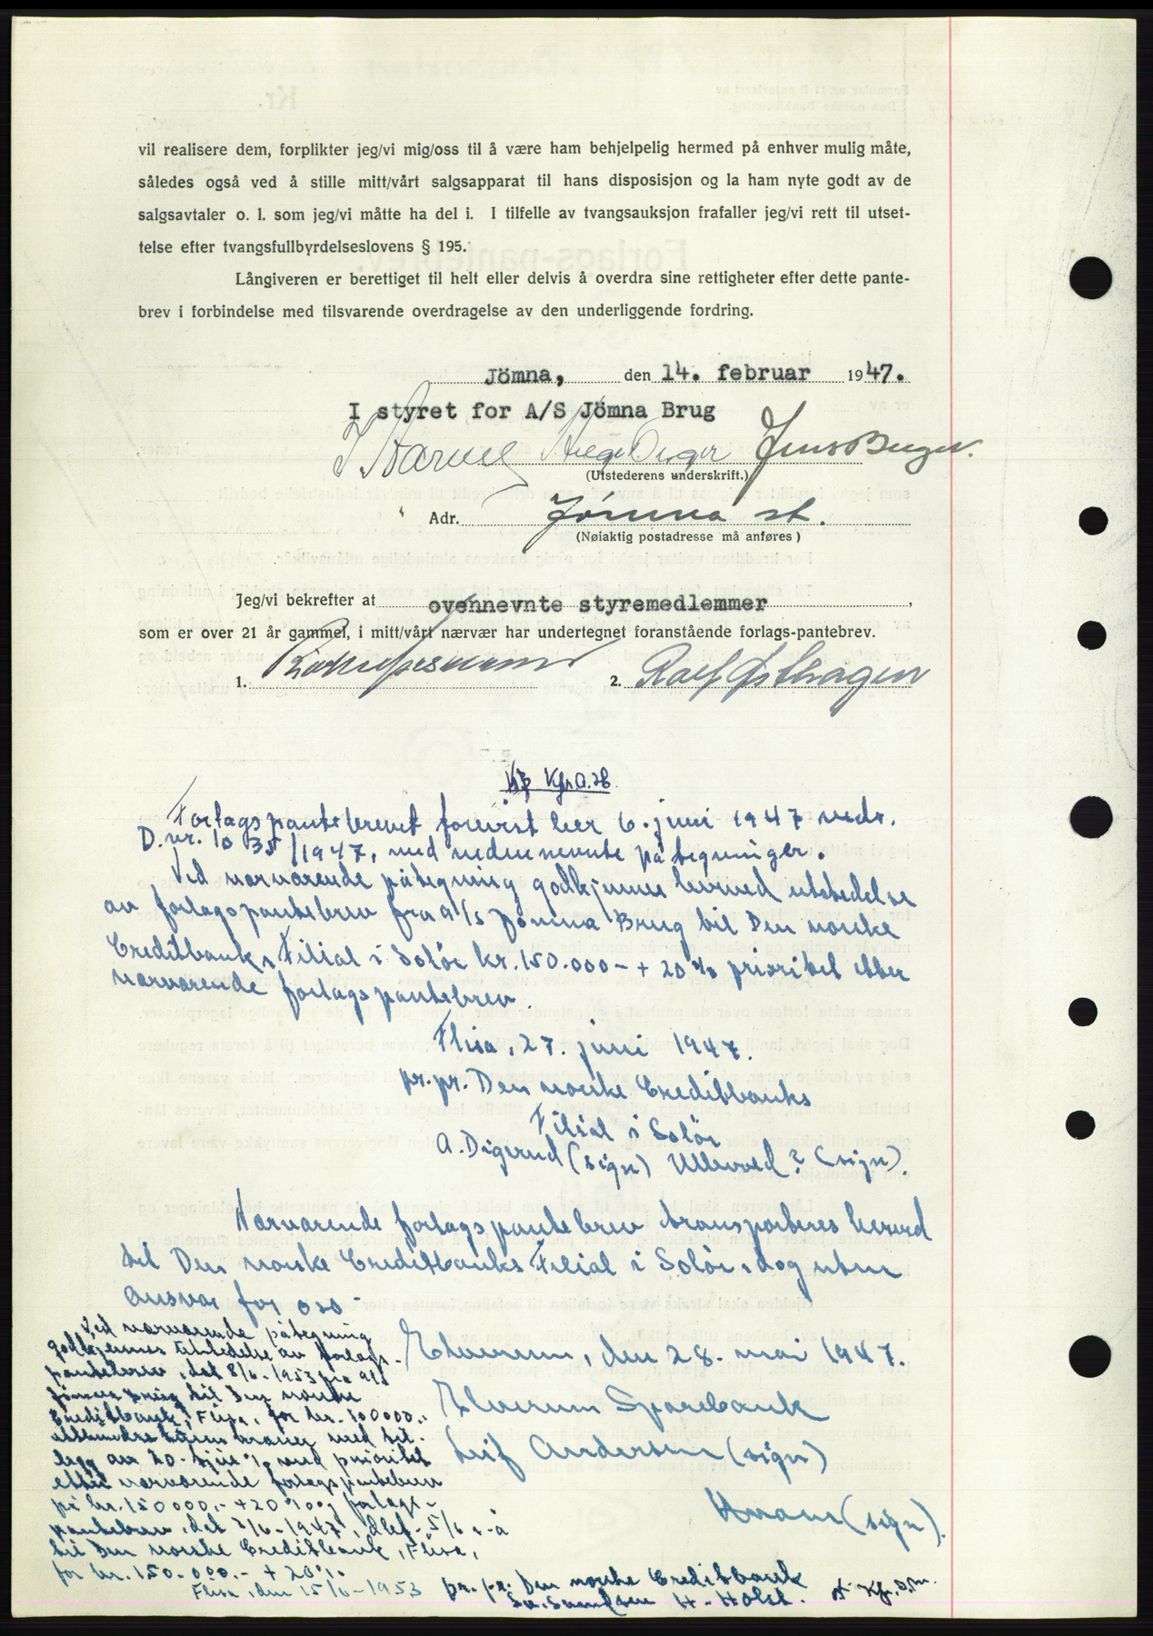 vil realisere dem, forplikter jeg/vi mig/oss til å være ham behjelpelig hermed på enhver mulig måte,
således også ved å stille mitt/vårt salgsapparat til hans disposisjon og la ham nyte godt av de
salgsavtaler o. l. som jeg/vi måtte ha del i. I tilfelle av tvangsauksjon frafaller jeg/vi rett til utset-
telse efter tvangsfullbyrdelseslovens § 195.
Långiveren er berettiget til helt eller delvis å overdra sine rettigheter efter dette pante-
brev i forbindelse med tilsvarende overdragelse av den underliggende fordring.
Jömna, den 14. februar 1947.
I styret for A/S Jömna Brug
Helge Berger Jens Berger.
(Utstederens underskrift.)
Adr. Jömna st.
(Nøiaktig postadresse må anføres)
Jeg/vi bekrefter at ovennevnte styremedlemmer,
som er over 21 år gammel, i mitt/vårt nærvær har undertegnet foranstående forlags-pantebrev.
1. 2. Rolf Østhagen
Kfr. O.H.
Forlagspantebrevet forevist her 6. juni 1947 vedr.
D.nr. 1035/1947, med nedennevnte påtegninger.
Ved nærværende påtegning godkjennes herved utstedelse
av forlagspantebrev fra a/s Jömna Brug til Den norske
Creditbank, Filial i Solör kr. 150.000- + 20% prioritet etter
nærværende forlagspantebrev.
Flisa, 27. juni 1947.
pr. pr. Den norske Creditbanks
Filial i Solör
A. Digerud (sign) Ullevold? (sign).
Nærværende forlagspantebrev transporteres herved
til Den norske Creditbanks Filial i Solör, dog uten
ansvar for oss -
Elverum, den 28. mai 1947.
Elverum Sparebank
Leif Andersen (sign)
(sign).
Ved nærværende påtegning
godkjennes utstedelse av forlags-
pantebrev, dat 8/6-1953 fra a/s
Jömna Brug til Den norske
Creditbank, Flisa, for kr. 100000.-
etthundre tusen kroner med til-
legg av 20- tjue % med prioritet
etter nærværende forlagspantebrev
på kr. 150000.- + 20% og forlags-
pantebrev, dat 2/6-1947, dlef. 5/6 s.å
til Den norske Creditbank, Flisa,
for kr. 150.000.- + 20%.
Flisa, den 15/6-1953 pr. pr. Den norske Creditbank
H. Holst.